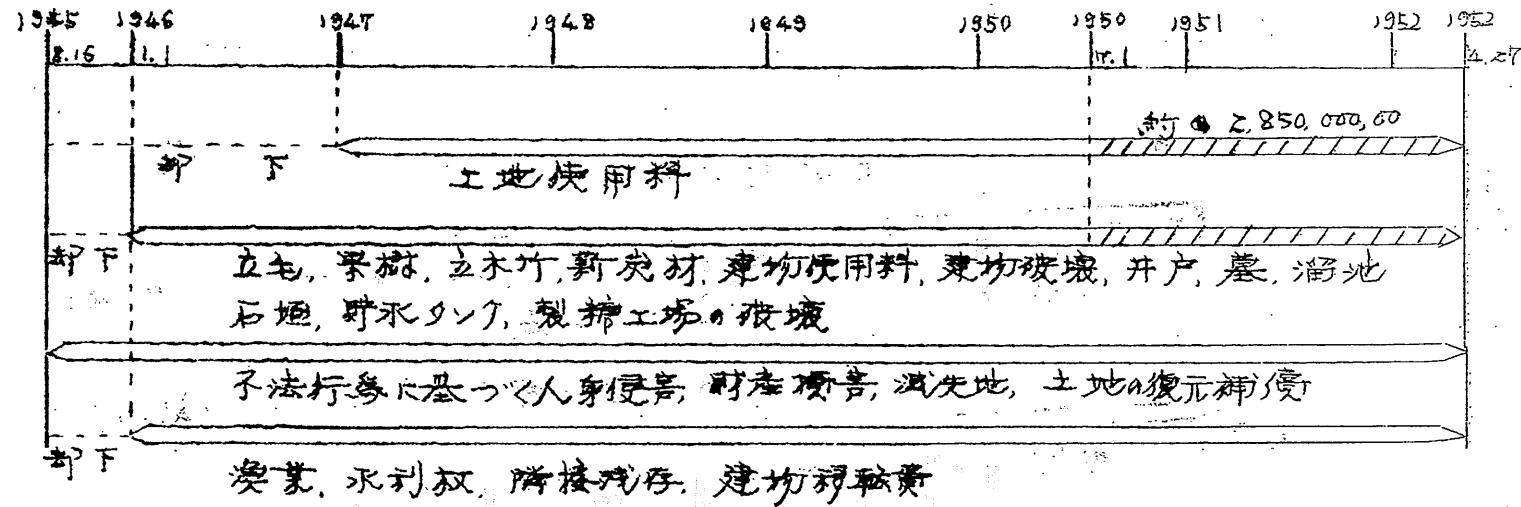 1945 1946 1947 1948 1949 1950 1950 1951 1952 1952
8.15 1.1 7.1 4.27
約 2,850,000,00
却下 土地使用料
却下 立毛, 果樹, 立木竹, 薪炭材, 建物使用料, 建物破壊, 井戸, 墓, 溜池
石垣, 貯水タンク, 製糖工場の破壊
不法行為に基づく人身侵害, 財産損害, 滅失地, 土地の復元補償
却下
漁業, 水利权, 隣接残存, 建物移転費